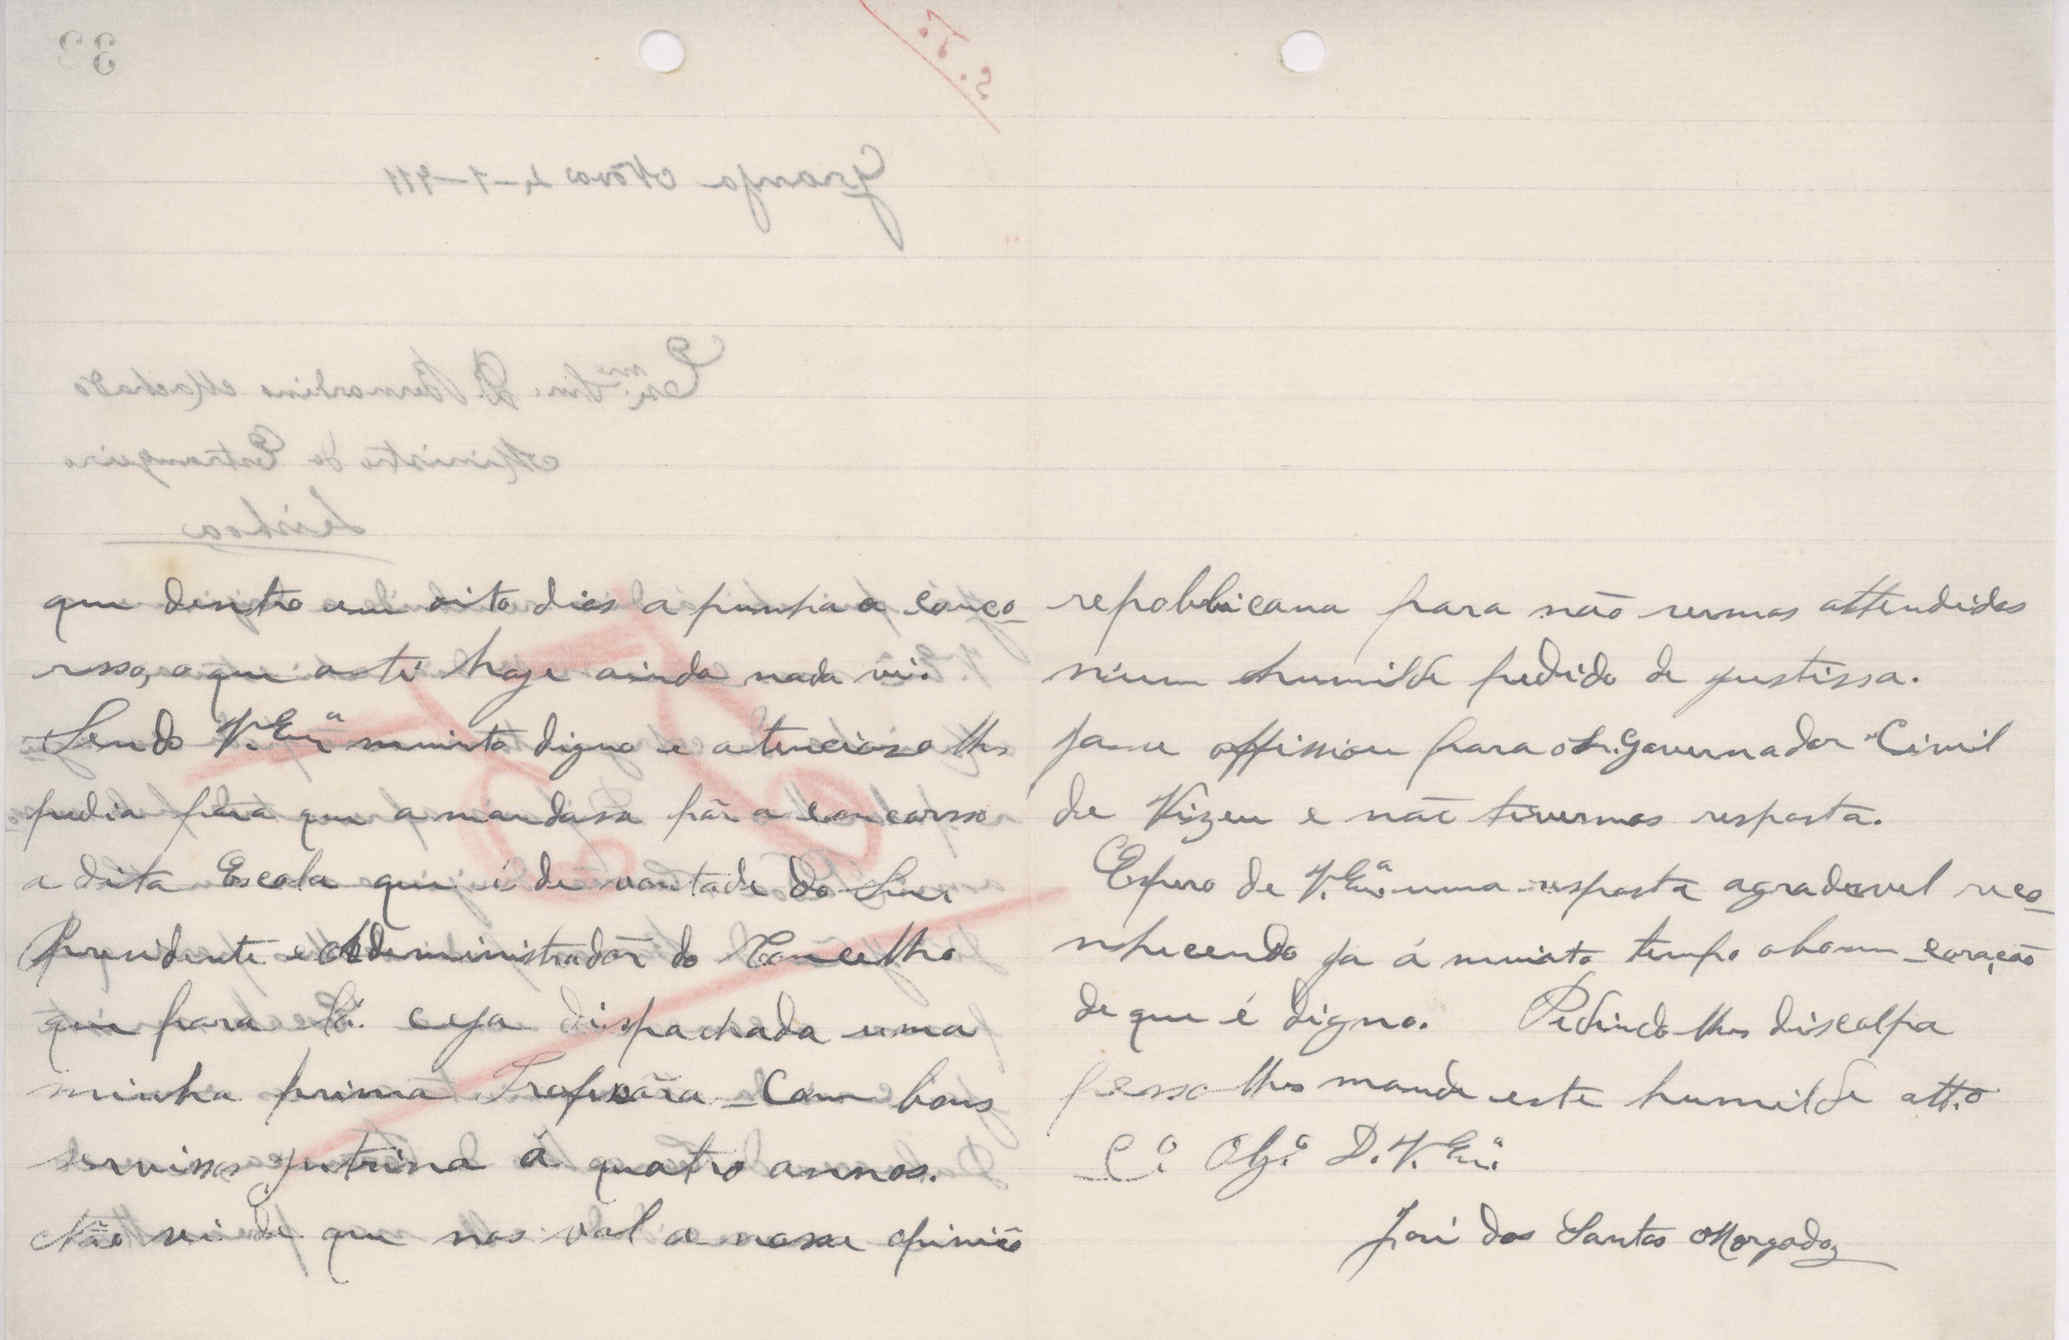 que dentro em oito dias a punha a conco-
rsso, o que até hoje ainda nada vi.
Sendo V. Exª muinto digno e atencioso lhe
pedia para que a mandasse pâr a concorsso
a dita Escola que é de vontade do Snr.
Prezidente e Adeministradôr do Concelho
que para lá ceja dispachada uma
minha prima Profesôra com bons
servissos intrina á quatro annos.
Não sei de que nos val a nossa opinião
repobblicana para não sermos attendidos
n'um humilde pedido de justissa.
Ja se offissiou para o Sr. Governador Civil
de Vizeu e não tivermos resposta.
Espero de V. Exª uma resposta agradavel reco-
nhecendo ja á muinto tempo o bom coração
de que é digno. Pedindo lhe discolpa
posso lhe mande este humilde att.º
C.º Obg.º D. V. Exª
José dos Santos Morgado